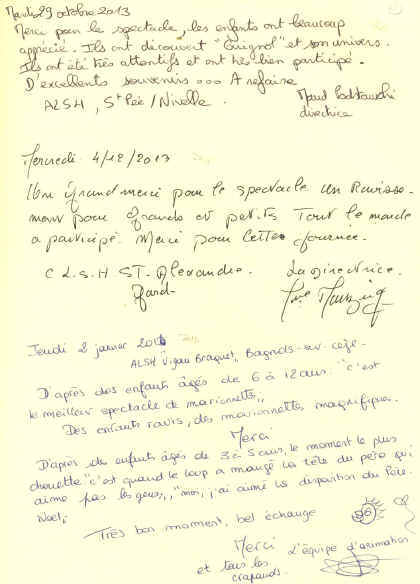 Mardi 29 octobre 2013
Merci pour le spectacle, les enfants ont beaucoup
apprécié. Ils ont découvert "Guignol" et son univers.
Ils ont été très attentifs et ont très bien participé.
D'excellents souvenirs ooo A refaire
ALSH, St Pée / Nivelle.
Maud
directrice
Mercredi 4/12/2013
Un grand merci pour le spectacle un Ravisse-
ment pour grands et petits Tout le monde
a participé. Merci pour cette journée.
C L S H ST. Alexandre. La Directrice.
Gard
Jeudi 2 janvier 2014
ALSH Vigan Braquet, Bagnols-sur-cèze.
D'après des enfants âgés de 6 à 12 ans "c'est
le meilleur spectacle de marionnette"
Des enfants ravis, des marionnettes magnifiques.
Merci
D'après des enfants âgés de 3 à 5 ans, le moment le plus
chouette "c'est quand le loup a mangé la tête du père qui
aime pas les gens", "moi, j'ai aimé la disparition du Père
Noël"
Très bon moment, bel échange
Merci L'équipe d'animation
et tous les
crapauds.